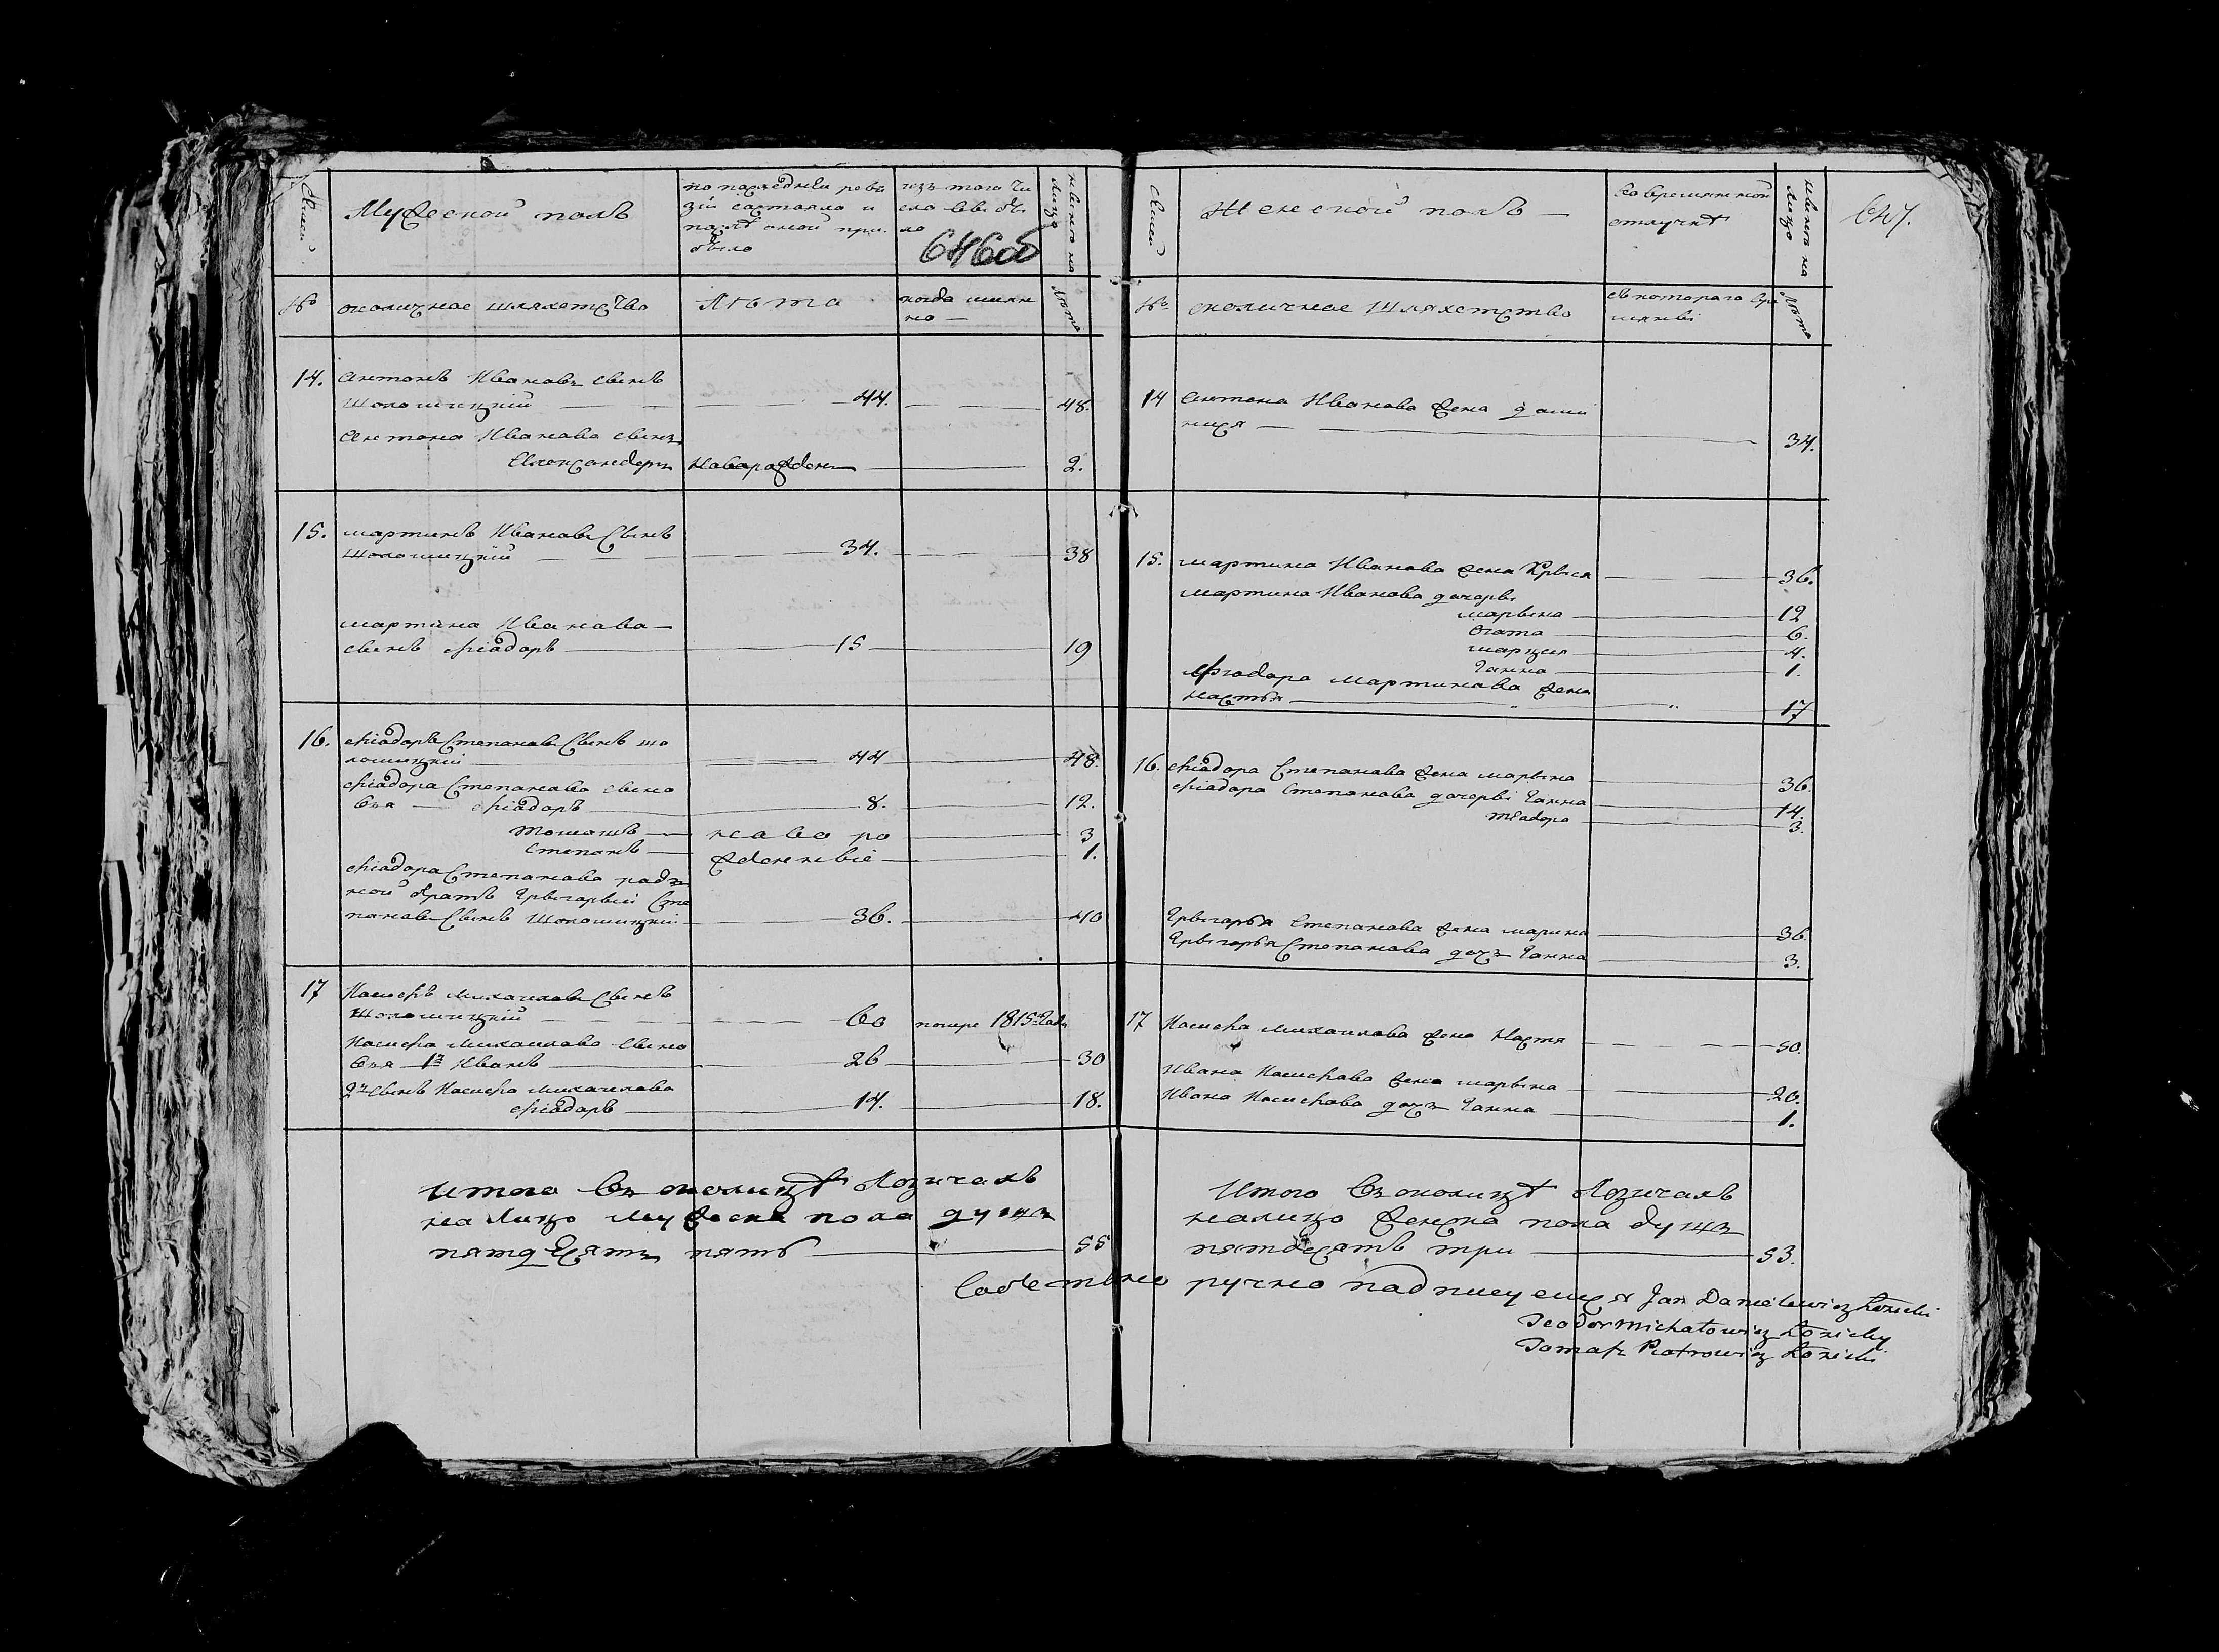 Семей
Мужеской полъ
по последней реви
зіи состояло и
после оной при
было
изъ того чи
сла выбы
ло
646об
ныне на
лицо
№
околичное шляхетство
Лѣта
когда имян
но —
Лѣта
14. Антонъ Ивановъ сынъ
Шоломицкій — 44. — 48.
Антона Иванова сынъ
Александеръ новорожден — 2.
15. мартинъ Ивановъ Сынъ
Шоломицкій — 34. — 38
мартина Иванова —
сынъ Фіадоръ — 15 — 19
16. Фіадоръ Степановъ Сынъ шо
ломицкій — 44 — 48.
Фіадора Степанова сыно
вья — Фіадоръ — 8. — 12.
Томашъ — новоро — 3
Степанъ — жденныіе — 1.
Фіадора Степанова родъ
ной братъ Грыгорыи Сте
пановъ Сынъ Шоломицкій — 36. — 40
17 Михаиловъ Сынъ
Шоломицкій — 60 помре 1815го Года
Михаилова сыно
вья 1й Иванъ — 26 — 30
2й Сынъ Михаилова
Фіадоръ — 14. — 18.
Итого въ околицѣ Лозичахъ
на Лицо мужеска пола душъ
пятдесятъ пять — 55
647.
Семей
Женской полъ —
во временной
отлучкѣ
ныне на
лицо
№
околичное Шляхетство
съ котораго вре
мяни
Лѣта
14 Антона Иванова жена доми
ниця — 34.
15. мартина Иванова жена Крыся — 36.
мартина Иванова дочеры
марына — 12
Огата — 6.
марцея — 4.
Ганна — 1.
Фіодора мартинова жена
настья — 17
16. Фіадора Степанова жена марына — 36.
Фіадора Степанова дочеры Ганна — 14.
Тѣадора — 3.
Грыгорья Степанова жена марина — 36
Грыгорья Степанова дочъ Ганна — 3.
17 Михаилова жена Настя — 50.
Ивана жена марына — 20.
Ивана дочъ Ганна — 1.
Итого въ околицѣ Лозичахъ
налицо женска пола душъ
пятдесятъ три — 53.
Собственно ручно подписуемся Jan Danielewicz Łozicki
Teodor Michałowicz Łozicky
Tomasz Piotrowicz Łozicki